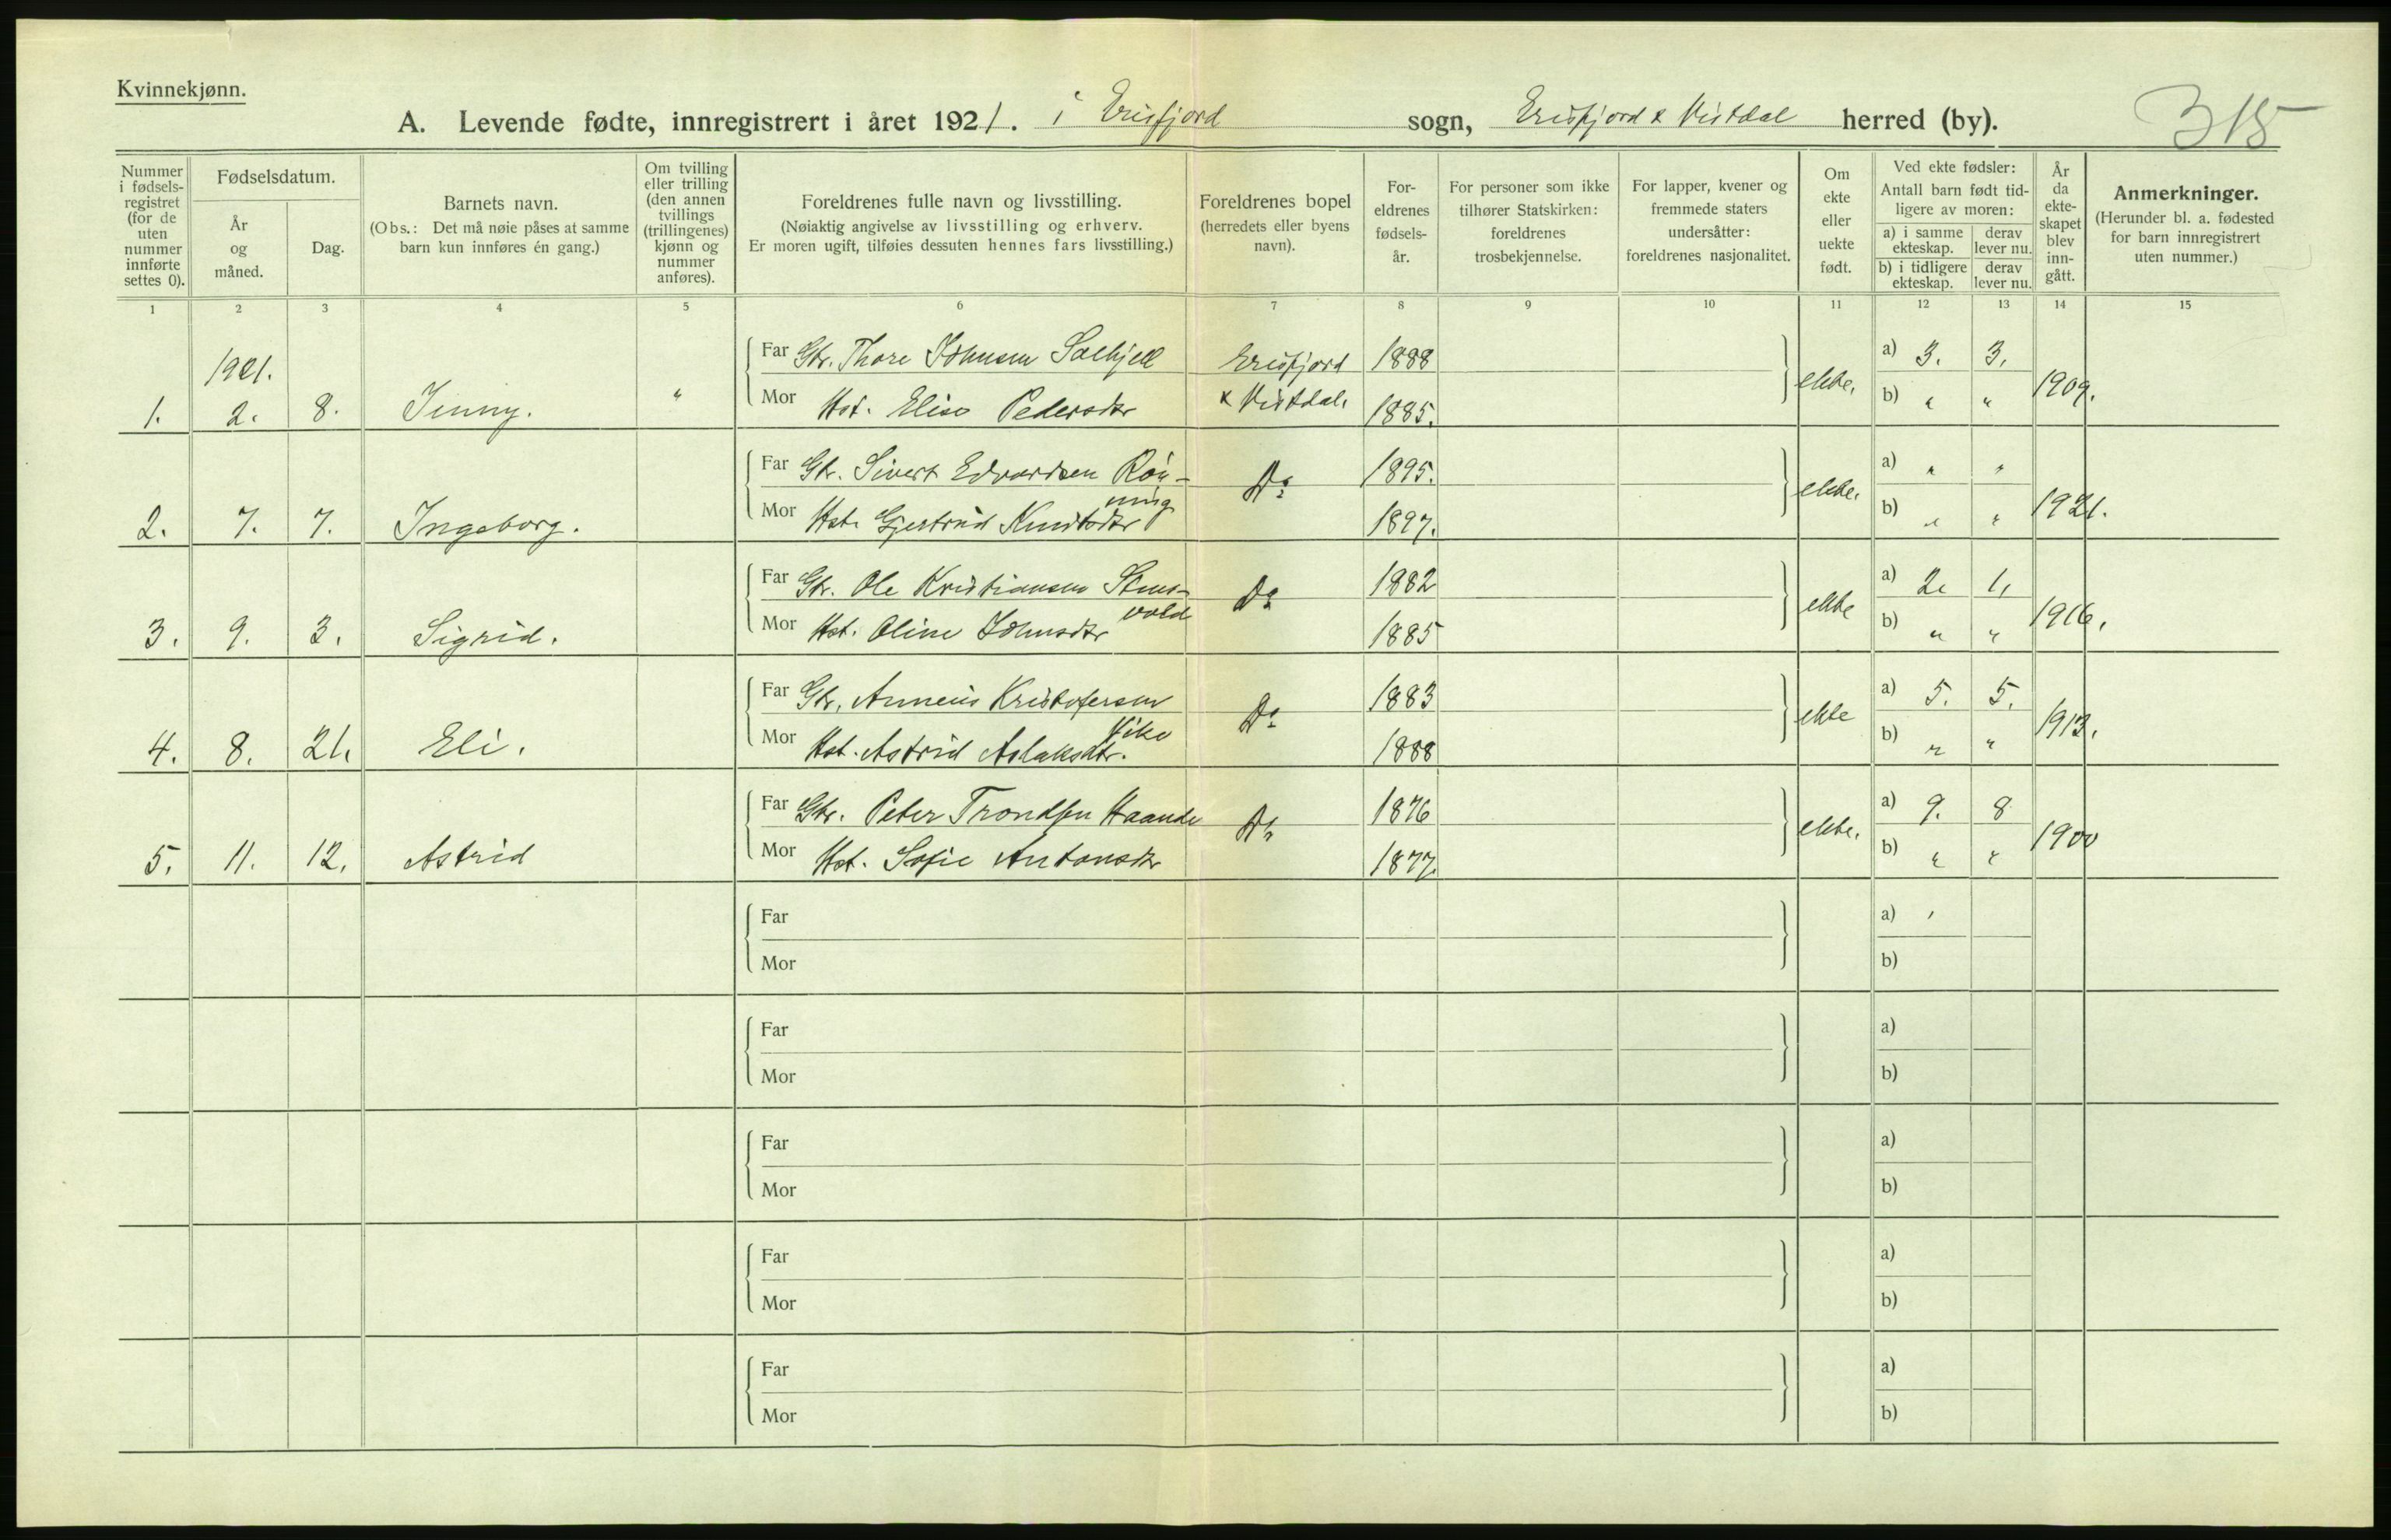 Kvinnekjønn.
A. Levende fødte, innregistrert i året 1921. i Erisfjord sogn, Erisfjord & Vistdal herred (by).
315
Nummer i fødselsregistret (for de uten nummer innførte settes 0).
Fødselsdatum.
År og måned.
Dag.
Barnets navn.
(Obs.: Det må nøie påses at samme barn kun innføres én gang.)
Om tvilling eller trilling (den annen tvillings (trillingenes) kjønn og nummer anføres).
Foreldrenes fulle navn og livsstilling.
(Nøiaktig angivelse av livsstilling og erhverv.
Er moren ugift, tilføies dessuten hennes fars livsstilling.)
Foreldrenes bopel
(herredets eller byens navn).
Foreldrenes fødselsår.
For personer som ikke tilhører Statskirken: foreldrenes trosbekjennelse.
For lapper, kvener og fremmede staters undersåtter: foreldrenes nasjonalitet.
Om ekte eller uekte født.
Ved ekte fødsler:
Antall barn født tidligere av moren:
a) i samme ekteskap. derav lever nu.
b) i tidligere ekteskap. derav lever nu.
År da ekteskapet blev inngått.
Anmerkninger.
(Herunder bl. a. fødested for barn innregistrert uten nummer.)
1 2 3 4 5 6 7 8 9 10 11 12 13 14 15
1921.
Far Gbr. Thore Johnsen Solhjell Erisfjord 1888 a) 3. 3.
1. 2. 8. Jenny. " Mor Hst. Elise Pedersdtr & Vistdal. 1885. ekte. b) " " 1909.
Far Gbr. Sivert Edvardsen Rön- Do 1895. a) " "
ning
2. 7. 7. Ingeborg. Mor Hst. Gjertrud Knutsdtr 1897. ekte. b) " " 1921.
Far Gbr. Ole Kristiansen Stens- Do 1882 a) 2. 1.
vold
3. 9. 3. Sigrid. Mor Hst. Oline Johnsdtr 1885 ekte b) " " 1916.
Far Gbr. Anneus Kristofersen Do 1883 a) 5. 5.
Vike
4. 8. 21. Eli. Mor Hst. Astrid Aslaksdtr. 1888 ekte b) " " 1913.
Far Gbr. Peter Trondsen Haande Do 1876 a) 9. 8
5. 11. 12. Astrid Mor Hst. Sofie Antonsdtr 1877. ekte. b) " " 1900
Far a)
Mor b)
Far a)
Mor b)
Far a)
Mor b)
Far a)
Mor b)
Far a)
Mor b)